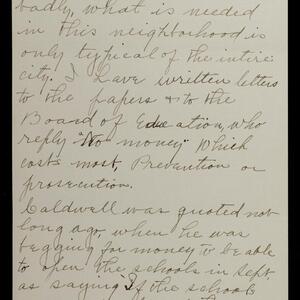 badly, what is needed
in this neighborhood is
only typical of the entire
city. I have written letters
to the papers & to the
Board of Education, who
reply "No money". Which
costs most, Prevention or
prosecution.
Caldwell was quoted not
long ago, when he was
begging for money to be able
to open the schools in Sept.
as saying if the schools